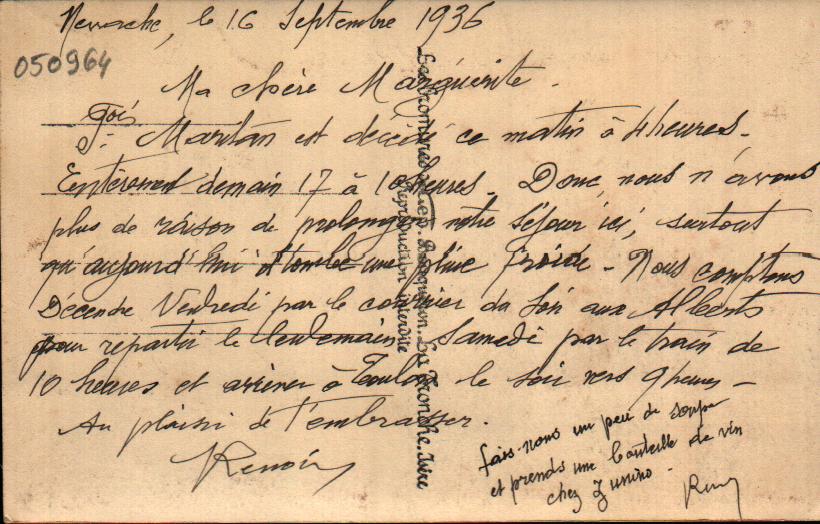 Nevache, le 16 Septembre 1936
050964
Ma chère Marguerite.
Maritan est décédé ce matin à 4 heures.
Enterrement demain 17 à 10 heures. Donc, nous n'avons
plus de raison de prolonger notre séjour ici, surtout
qu'aujourd'hui il tombe une pluie froide. Nous comptons
Décendre Vendredi par le courrier du soir aux Alberts
pour repartir le lendemain Samedi par le train de
10 heures et arriver à Toulon le soir vers 9 heures -
Au plaisir de t'embrasser.
Renoir
fais-nous un peu de soupe
et prends une bouteille de vin
chez Zunino.
Reproduction interdite